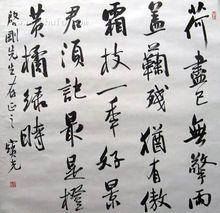 荷盡已無擎雨
蓋鞠殘猶有傲
霜枝一年好景
君須記最是橙
黃橘綠時
啟剛先生存正之